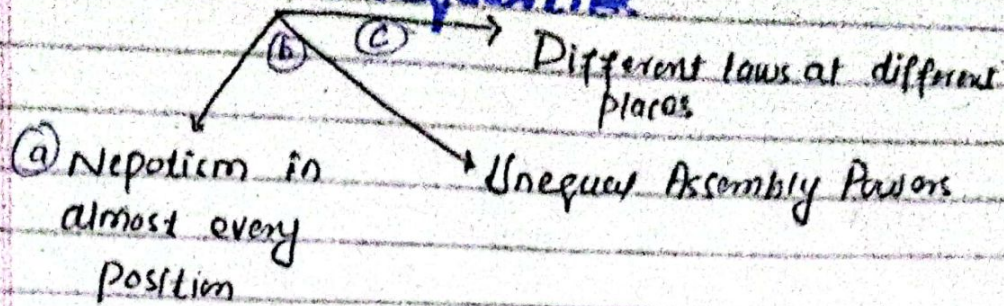 (b) (c)
Different laws at different
places
(a) Nepotism in
almost every
position
Unequal Assembly Powers